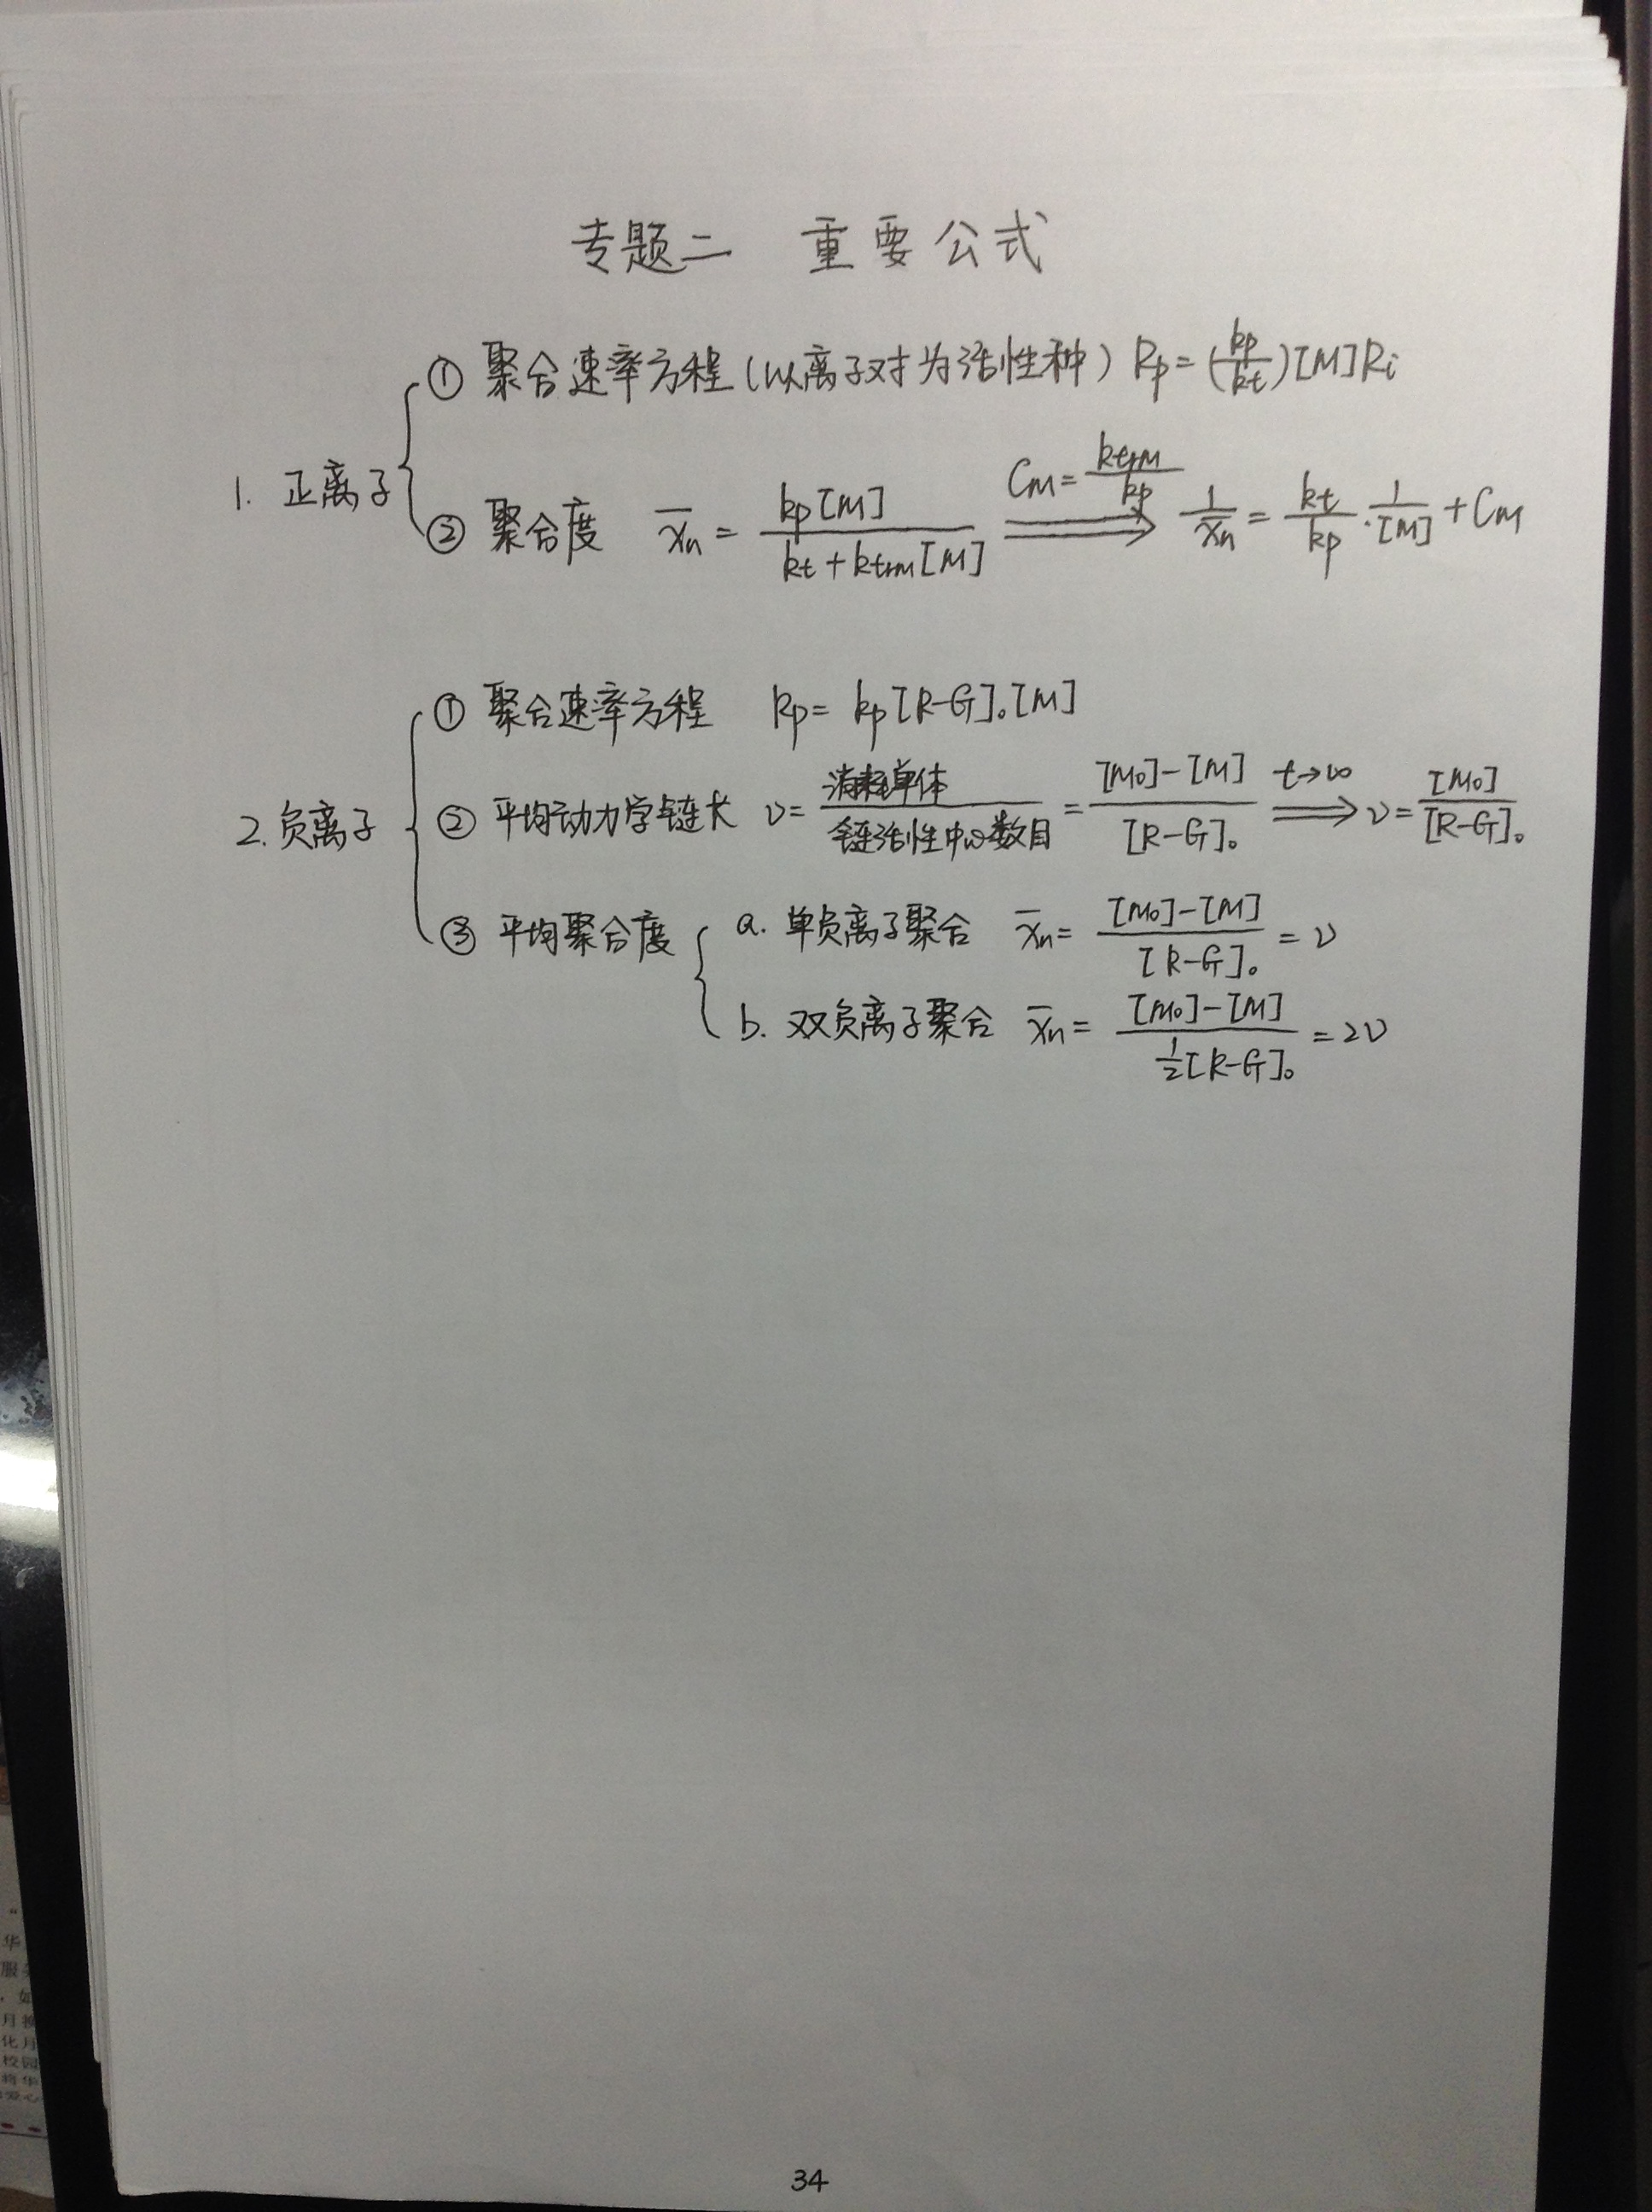 专题二 重要公式
① 聚合速率方程(以离子对为活性种) Rp=(kp/kt)[M]Ri
1. 正离子
② 聚合度 X̄n = kp[M] / (kt+ktrM[M]) ⟹ (CM=ktrM/kp) 1/X̄n = kt/kp · 1/[M] + CM
① 聚合速率方程 Rp= kp[R-G]₀[M]
2. 负离子
② 平均动力学链长 ν= 消耗单体/链活性中心数目 = ([M₀]-[M])/[R-G]₀ ⟹ (t→∞) ν= [M₀]/[R-G]₀
③ 平均聚合度
a. 单负离子聚合 X̄n= ([M₀]-[M])/[R-G]₀ = ν
b. 双负离子聚合 X̄n= ([M₀]-[M])/(½[R-G]₀) = 2ν
34
华
服
月
化月
校园
将华
爱心